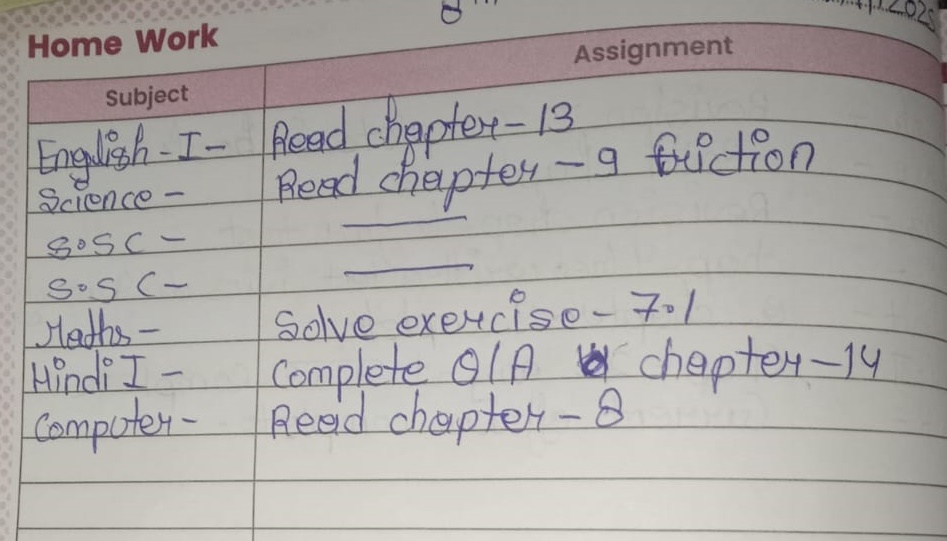 Home Work
Subject Assignment
English - I - Read chapter - 13
Science - Read chapter - 9 friction
S.SC -
S.SC -
Maths - Solve exercise - 7.1
Hindi I - Complete Q/A chapter - 14
Computer - Read chapter - 8